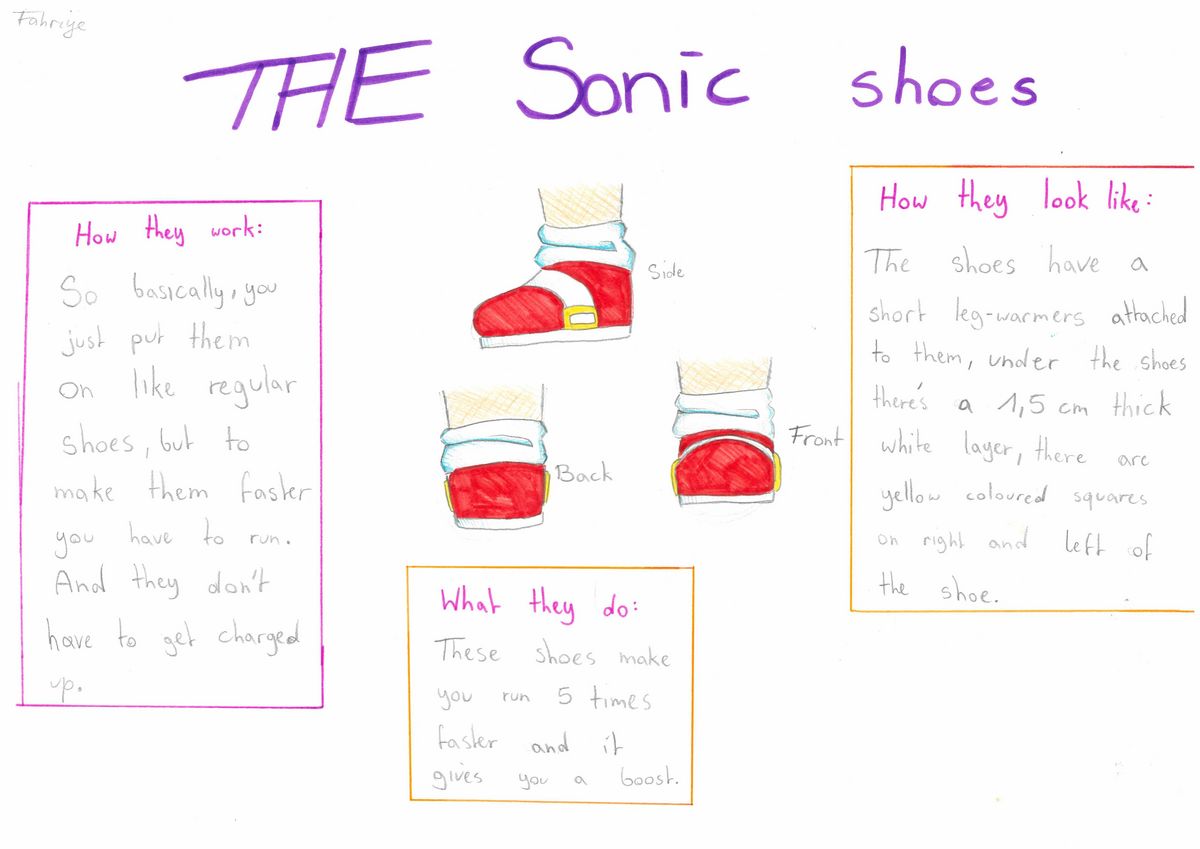 Fahrije
THE Sonic shoes
How they work:
So basically, you
just put them
on like regular
shoes, but to
make them faster
you have to run.
And they don't
have to get charged
up.
Side
Back
Front
What they do:
These shoes make
you run 5 times
faster and it
gives you a boost.
How they look like:
The shoes have a
short leg-warmers attached
to them, under the shoes
there's a 1,5 cm thick
white layer, there are
yellow coloured squares
on right and left of
the shoe.